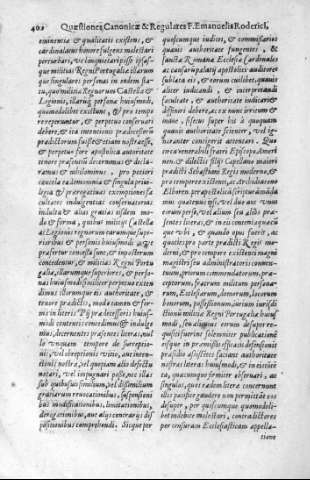 402 Quæstiones Canonicæ & Regulares F. Emanuelis Roderici,
eminentia & qualitatis existens, &
cardinalatus honore fulgens molestari
perturbari, vel inquietari possit ipsas-
que militias Regni Portugaliæ illarum
que singulares personas in eodem sta-
tu, quo militia Regnorum Castellæ &
Legionis, illarum personæ huiusmodi,
quomodolibet existunt, & pro tempo
re reperiantur, & perpetuo conseruari
debere, & ita intentionis prædecessorũ
prædictorum fuisse & etiam nostræ esse,
& perpetuo fore apostolica autoritate
tenore præsenti decernimus & decla-
ramus
modo & forma, quibus militijs Castellæ
ac Legionis regnorum earumque supe-
rioribus & personis huiusmodi
concedentur, & militijs Regni Portu
galiæ, illarumque superiores, & perso-
nas huiusmodi similiter perpetuo exten
dimus illorumque eis authoritate, &
tenore prædictis, modo tamen & for-
mis in literis Pij prædecessoris huius-
modi contentis concedimus & indulge
mus, decernentes præsentes literas, nul-
lo vnquam tempore de surreptio-
nis, vel obreptionis vitio, aut inten-
tionis nostræ, vel quopiam alio defectu
notari, vel impugnari posse, nec illas
sub quibusuis similium, vel dissimilium
gratiarum reuocationibus, suspensioni
bus modificationibus, limitationibus,
derogationibus, aut alijs contrarijs dis
positionibus comprehendi. Sicque per
quoscumque iudices, & commissarios
quauis authoritate fungentes, &
sanctæ Romanæ Ecclesiæ Cardinales
ac causarum palatij apostolici auditores
sublata eis, & eorum cuilibet, quauis
aliter iudicandi, & interpretandi
facultate, & authoritate iudicari &
definiri debere, ac ex nunc irritum &
inane, si secus super his à quoquam
quauis authoritate scienter, vel ig-
noranter contigerit attentari. Quo
circa venerabili fratri Episcopo
& dilectis filijs Capellano maiori
prædicti Sebastiani Regis moderno, &
pro tempore existenti, ac Archidiacono
quatenus ipsi, vel duo aut vnus
eorum per se, vel alium seu alios præ-
sentes literas, & in eis contenta quæcũ
que vbi, & quando opus fuerit, ac
quoties pro parte prædicti Regis mo-
derni, & pro tempore existentis magni
magistri seu administratoris conuen-
tuum, priorum commendatorum, præ-
ceptorum, fratrum militum persona-
rum, Ecclesiarum, domorum, locorum
bonorum, possessionum, iurium iurisdi
ctionis militiæ Regni Portugaliæ huius
modi, seu alicuius eorum desuper re-
quisiti fuerint solemniter publicantes
eisque in præmissis efficacis defensionis
præsidio assistentes faciant authoritate
nostra literas huiusmodi, & in eis conten-
ta, quæcumque firmiter obseruari, ac
singulos, quos eædem literæ concernunt
illis pacifice gaudere non permittẽtes eos
desuper, per quoscumque quomodoli-
bet indebite molestari, contradictores
per censuram Ecclesiasticam appella-
tione